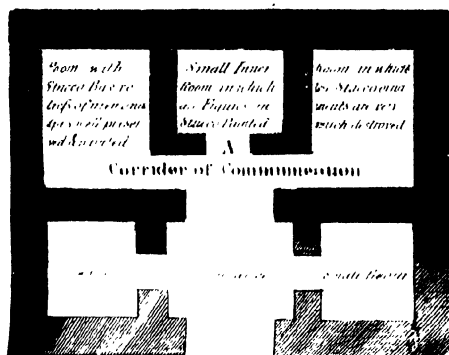 Room with
Stucco Bas re
liefs of men and
apes well preser
ved & painted
Small Inner
Room in which
as Figures in
Stucco Painted
Room in which
the Stucco orna
ments are very
much destroyed
A
Corridor of Communication
Small Room